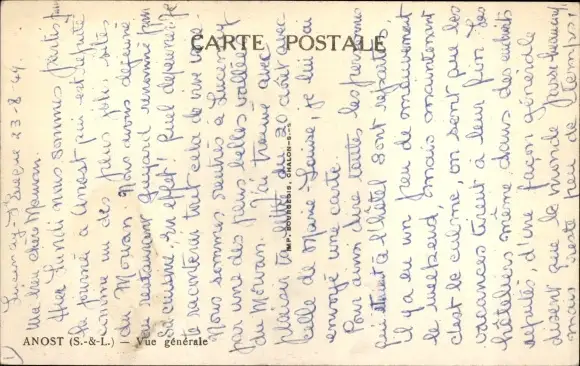 CARTE POSTALE
IMP. BOURGEOIS, CHALON-S-S
ANOST (S.-&-L.) — Vue générale
23-8-64.
Ma bien chère Maman.
Hier Lundi nous sommes partis
la journée à Anost qui est réputé
comme un des plus jolis sites
du Morvan. Nous avons déjeuné
au restaurant Guyard renommé pour
sa cuisine, en effet! Quel déjeuner! Je
te raconterai tout cela de vive voix.
Nous sommes rentrés à Lucenay
par une des plus belles vallées
du Morvan. J'ai trouvé avec
plaisir ta lettre du 20 août avec
celle de Marie-Louise, je lui ai
envoyé une carte.
Pour ainsi dire toutes les personnes
qui étaient à l'hôtel sont reparties,
il y a eu un peu de mouvement
le weekend, mais maintenant
c'est le calme on sent que les
vacances tirent à leur fin. Les
hôteliers même dans des endroits
réputés, d'une façon générale
disent que le monde passe beaucoup
mais reste peu de temps.